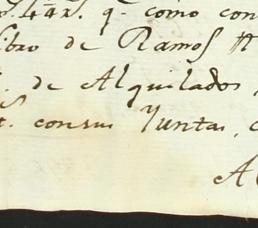 q. como con
libro de Ramos
de Alquilados
consu Junta,
A